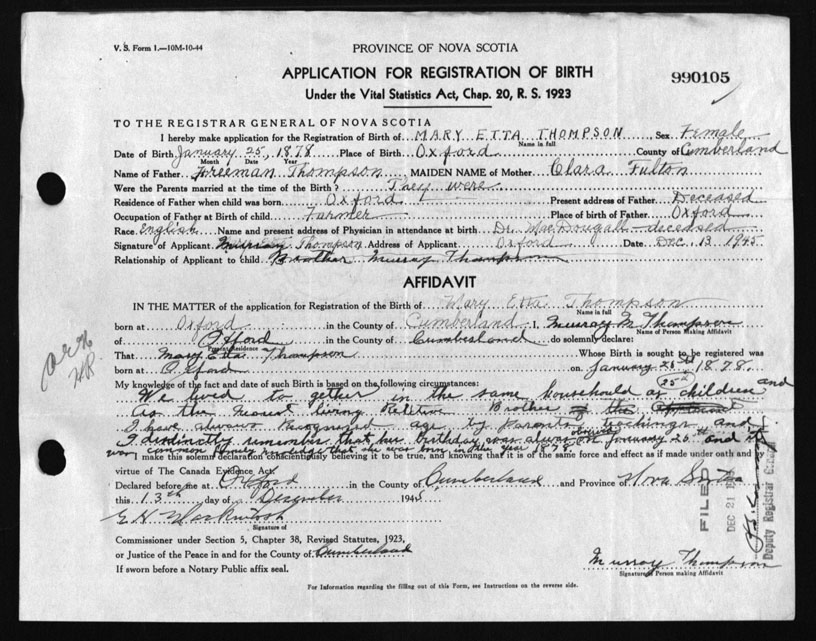 V. S. Form 1.—10M-10-44
PROVINCE OF NOVA SCOTIA
APPLICATION FOR REGISTRATION OF BIRTH
990105
Under the Vital Statistics Act, Chap. 20, R. S. 1923
TO THE REGISTRAR GENERAL OF NOVA SCOTIA
I hereby make application for the Registration of Birth of MARY ETTA THOMPSON Sex Female
Name in full
Date of Birth January 25, 1878 Place of Birth Oxford County of Cumberland
Month Date Year
Name of Father Foreeman Thompson MAIDEN NAME of Mother Clara Fulton
Were the Parents married at the time of the Birth? They were
Residence of Father when child was born Oxford Present address of Father Deceased
Occupation of Father at Birth of child Farmer Place of birth of Father Oxford
Race English Name and present address of Physician in attendance at birth Dr. MacDougall - deceased
Signature of Applicant Thompson Address of Applicant Oxford Date Dec. 13 1945
Relationship of Applicant to child Brother Murray Thompson
AFFIDAVIT
IN THE MATTER of the application for Registration of the Birth of Mary Etta Thompson
Name in full
born at Oxford in the County of Cumberland I, Murray M Thompson
Name of Person making Affidavit
of Oxford in the County of Cumberland do solemnly declare:
Present Residence
That Mary Etta Thompson Whose Birth is sought to be registered was
born at Oxford on January 25th 1878.
My knowledge of the fact and date of such Birth is based on the following circumstances: 25th
We lived to gether in the same household as children and
as the nearest living relative Brother of the
I have always recognized age by parents teachings and
I distinctly remember that her birthday was always on January 25th and it
was common family knowledge that she was born in the year 1878
make this solemn declaration conscientiously believing it to be true, and knowing that it is of the same force and effect as if made under oath and
virtue of The Canada Evidence Act.
Declared before me at Oxford in the County of Cumberland and Province of Nova Scotia
this 13th day of December 1945
Signature of
Commissioner under Section 5, Chapter 38, Revised Statutes, 1923,
or Justice of the Peace in and for the County of Cumberland
If sworn before a Notary Public affix seal.
Murray Thompson
Signature of Person making Affidavit
For Information regarding the filling out of this Form, see Instructions on the reverse side.
FILED
DEC 21
Deputy Registrar General